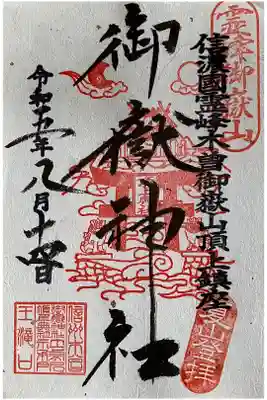 靈峯御嶽山
信濃國霊峰木曽御嶽山頂上鎮座
夏山登拝
御嶽神社
令和五年八月十
王滝口